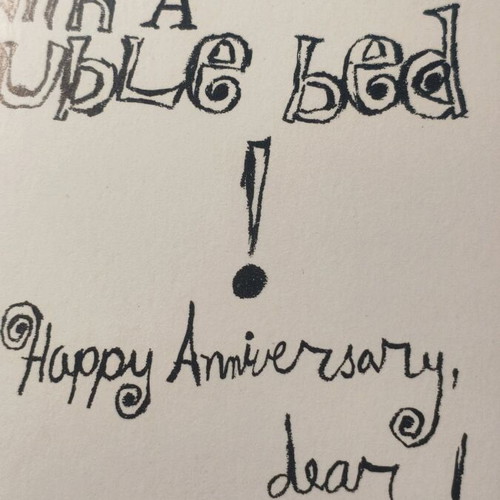 A
Bed
!
Happy Anniversary,
dear